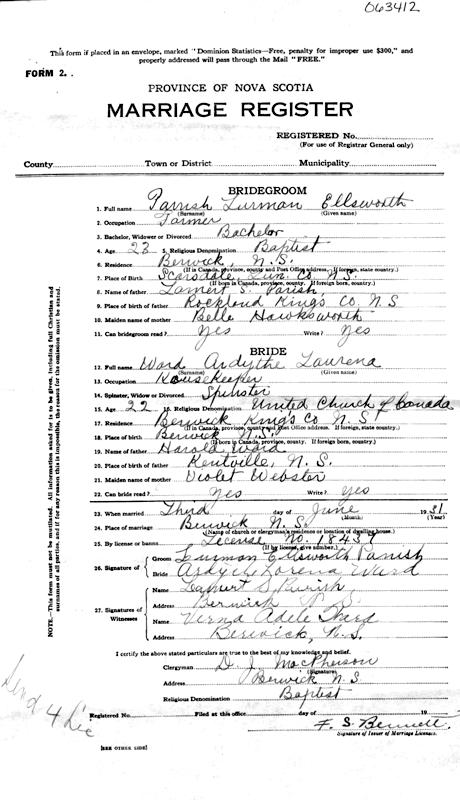 063412
This form if placed in an envelope, marked "Dominion Statistics—Free, penalty for improper use $300," and
properly addressed will pass through the Mail "FREE."
FORM 2.
PROVINCE OF NOVA SCOTIA
MARRIAGE REGISTER
REGISTERED No.
(For use of Registrar General only)
County Town or District Municipality
BRIDEGROOM
1. Full name Parrish Lurman Ellsworth
(Surname) (Given name)
2. Occupation Farmer
3. Bachelor, Widower or Divorced Bachelor
4. Age 23 5. Religious Denomination Baptist
6. Residence Berwick, N.S.
(If in Canada, province, county and Post Office address. If foreign, state country.)
7. Place of Birth Scarsdale, Lun. Co. N.S.
(If born in Canada, province, county. If foreign born, country.)
8. Name of father S. Parish
9. Place of birth of father Rockland Kings Co. N.S
10. Maiden name of mother Belle Hawksworth
11. Can bridegroom read? Yes Write? Yes
BRIDE
12. Full name Ward Ardythe Laurena
(Surname) (Given name)
13. Occupation Housekeeper
14. Spinster, Widow or Divorced Spinster
15. Age 22 16. Religious Denomination United Church of Canada
17. Residence Berwick Kings Co N.S.
(If in Canada, province, county and Post Office address. If foreign, state country.)
18. Place of birth Berwick N.S.
(If born in Canada, province, county. If foreign born, country.)
19. Name of father Harold Ward
20. Place of birth of father Kentville, N.S.
21. Maiden name of mother Violet Webster
22. Can bride read? Yes Write? Yes
23. When married Third day of June 1931
(Month) (Year)
24. Place of marriage Berwick N.S.
(Name of church or clergyman's residence or location of dwelling house.)
25. By license or banns License No. 18439
(If by license, give number.)
26. Signature of
Groom Lurman Ellsworth Parish
Bride Ardythe Lorena Ward
27. Signatures of Witnesses
Name S. Parish
Address Berwick N.S.
Name Verna Adele Ward
Address Berwick, N.S.
I certify the above stated particulars are true to the best of my knowledge and belief.
Clergyman D. J. MacPherson
(Signature)
Address Berwick N.S
Religious Denomination Baptist
Registered No. Filed at this office day of 19
F. S. Bennett
Signature of Issuer of Marriage Licenses.
[SEE OTHER SIDE]
NOTE.—This form must not be mutilated. All information asked for is to be given, including full Christian and
surnames of all parties, and if for any reason this is impossible, the reason for the omission must be stated.
Send
4 Lic